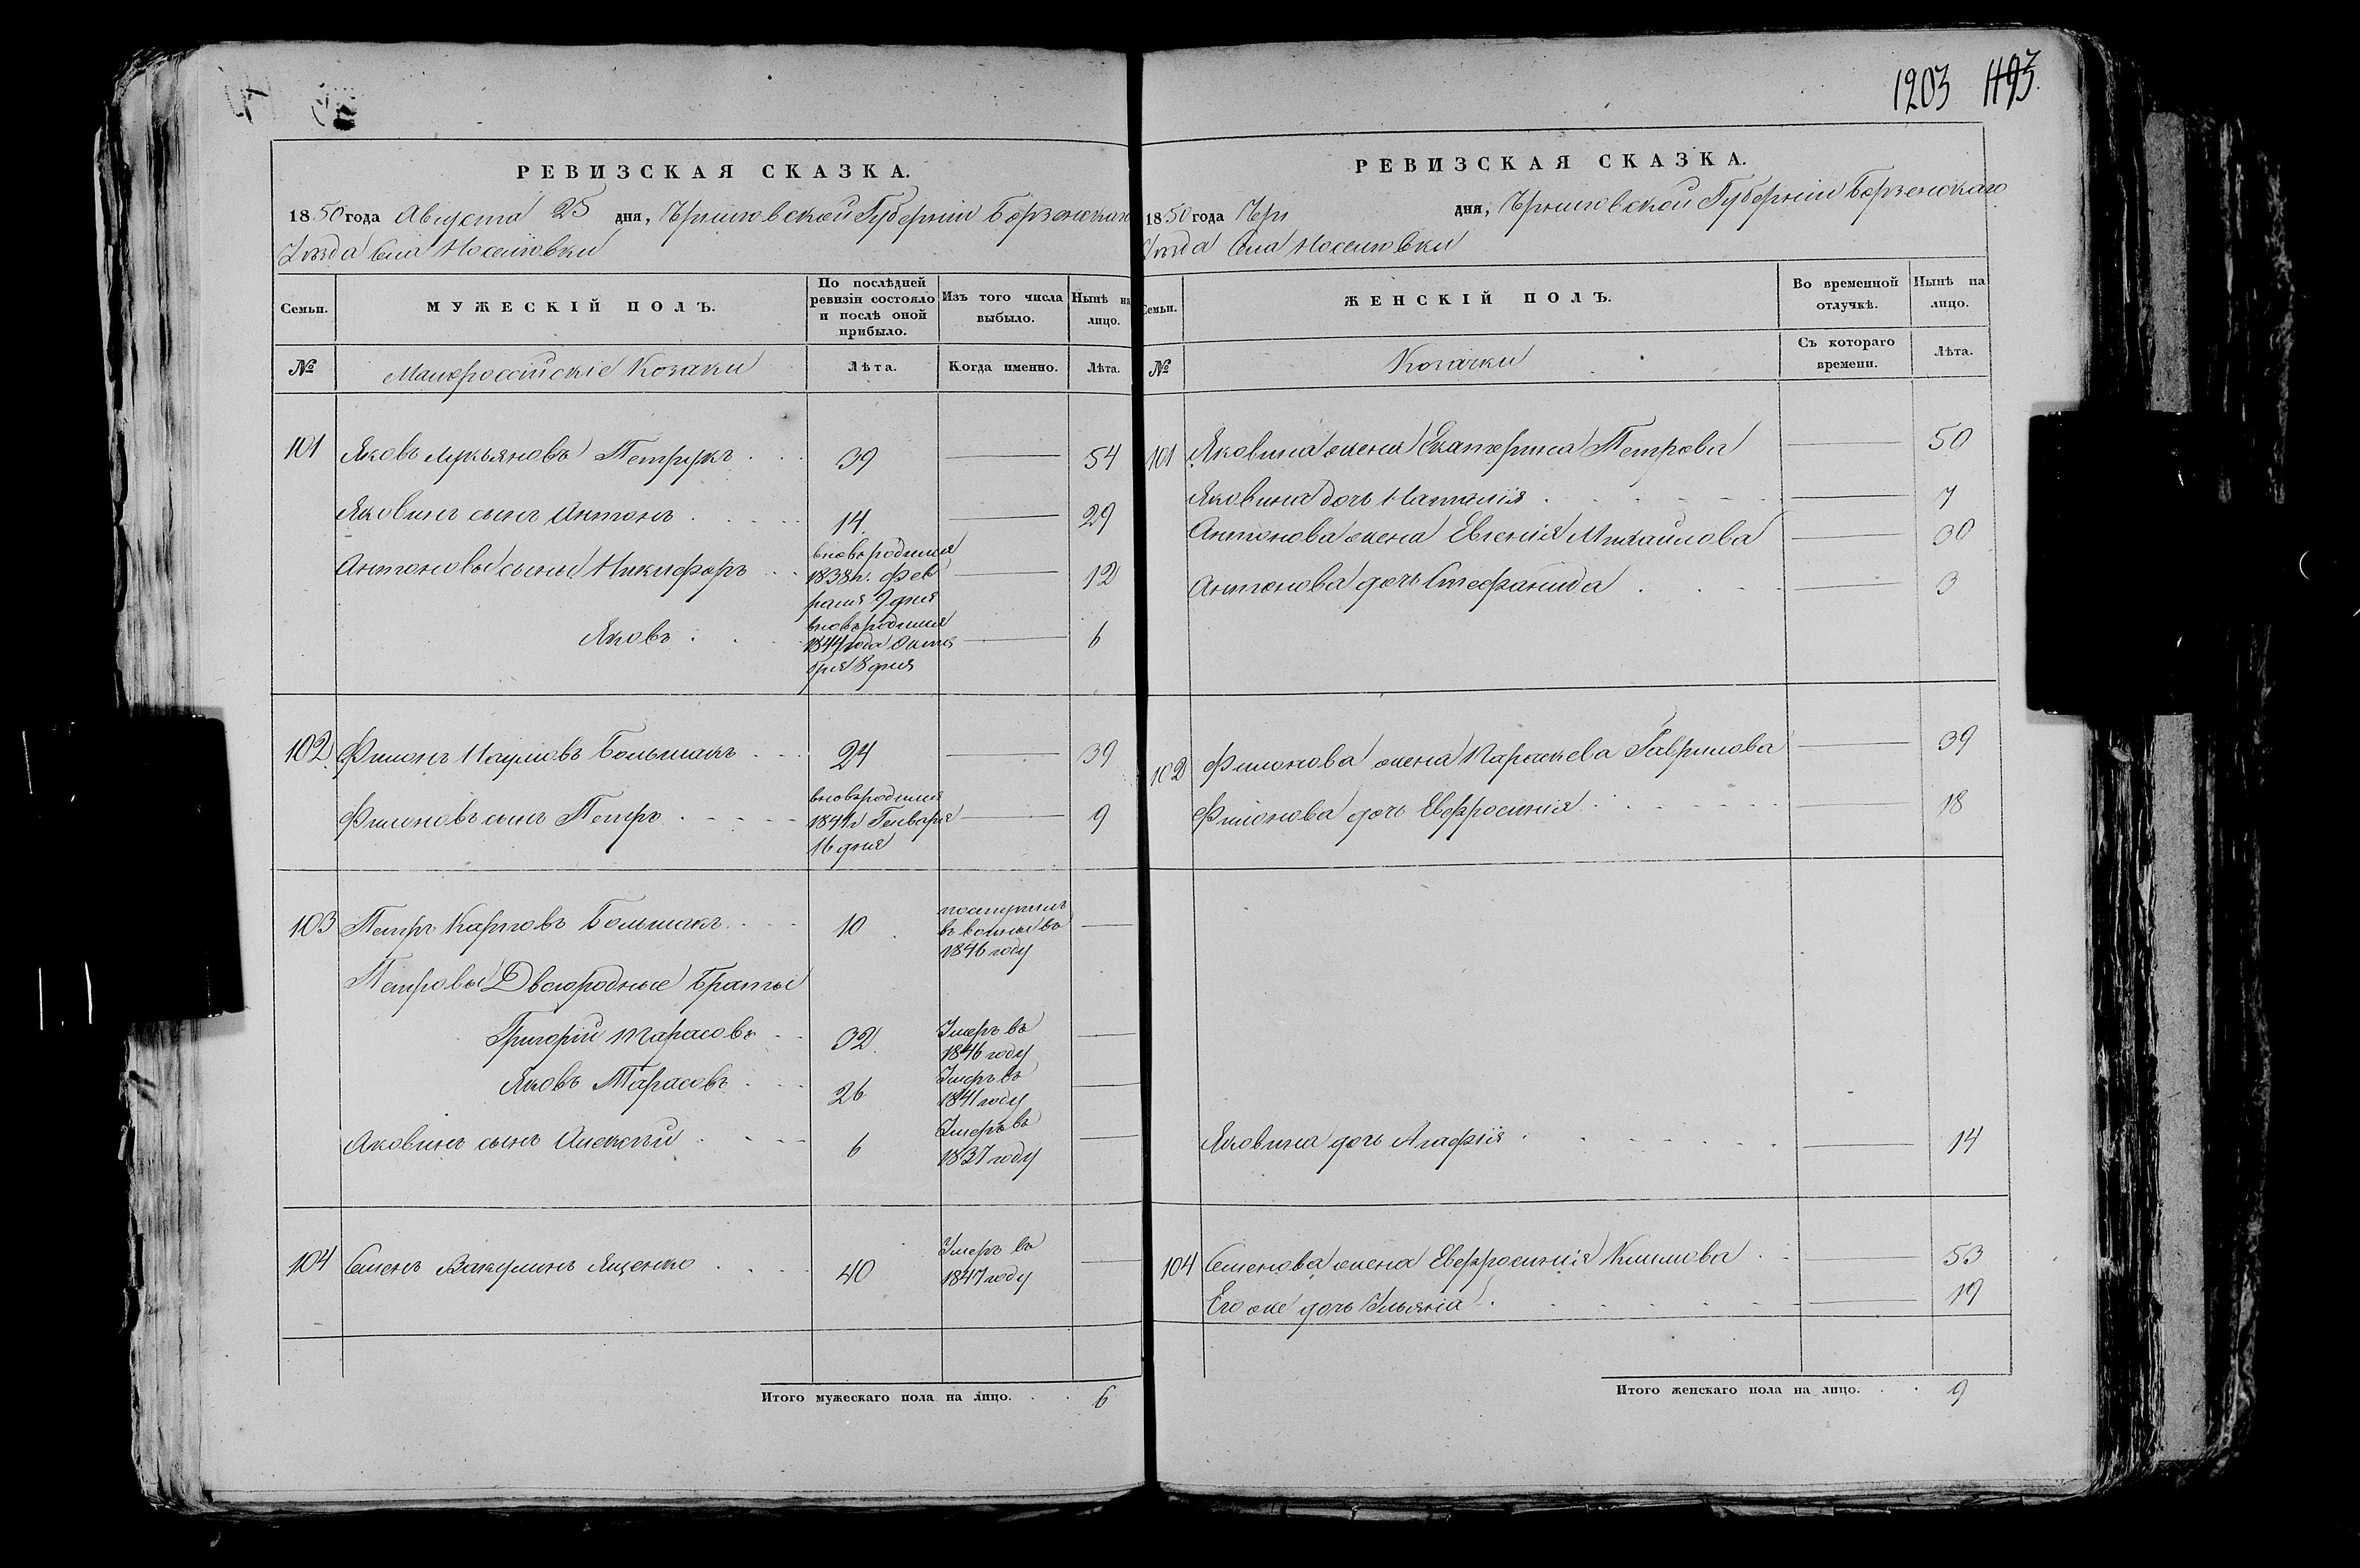 1203 1193
РЕВИЗСКАЯ СКАЗКА.
1850 года Августа 25 дня, Черниговской Губерніи Борзенскаго
Уѣзда Села Носеловки
Семьи.
МУЖЕСКІЙ ПОЛЪ.
По послѣдней ревизіи состояло и послѣ оной прибыло.
Изъ того числа выбыло.
Нынѣ на лицо.
№
Малороссійскіе Козаки
Лѣта.
Когда именно.
Лѣта.
101 Яковъ Лукьяновъ Петрукъ 39 — 54
Яковинъ сынъ Антонъ 14 — 29
Антоновы сыны Никифоръ вновьродился 1838 г. Февраля 9 дня — 12
Яковъ вновьродился 1844 года Октября 8 дня — 6
102 Филонъ Наумовъ Большакъ 24 — 39
Филоновъ сынъ Петръ вновьродился 1841 г Генваря 16 дня — 9
103 Петръ Карповъ Большакъ 10 поступилъ въ 1846 году —
Петровы Двоюродные Братья
Григорій Тарасовъ 32 Умеръ въ 1846 году —
Яковъ Тарасовъ 26 Умеръ въ 1841 году —
Яковинъ сынъ Алексѣй 6 Умеръ въ 1837 году —
104 Семенъ Вакулинъ Ященко 40 Умеръ въ 1847 году —
Итого мужескаго пола на лицо. 6
РЕВИЗСКАЯ СКАЗКА.
1850 года Чер дня, Черниговской Губерніи Борзенскаго
Уѣзда Села Носеловки
Семьи.
ЖЕНСКІЙ ПОЛЪ.
Во временной отлучкѣ.
Нынѣ на лицо.
№
Козачки
Съ котораго времени.
Лѣта.
101 Яковина жена Екатерина Петрова — 50
Яковина дочь Наталія — 7
Антонова жена Евгенія Михайлова — 30
Антонова дочь Стефанида — 3
102 Филонова жена Параскева Гаврилова — 39
Филонова дочь Евфросинія — 18
Яковина дочь Агафія — 14
104 Семенова жена Евфросинія Климова — 53
Его же дочь Ульянiа — 19
Итого женскаго пола на лицо. 9